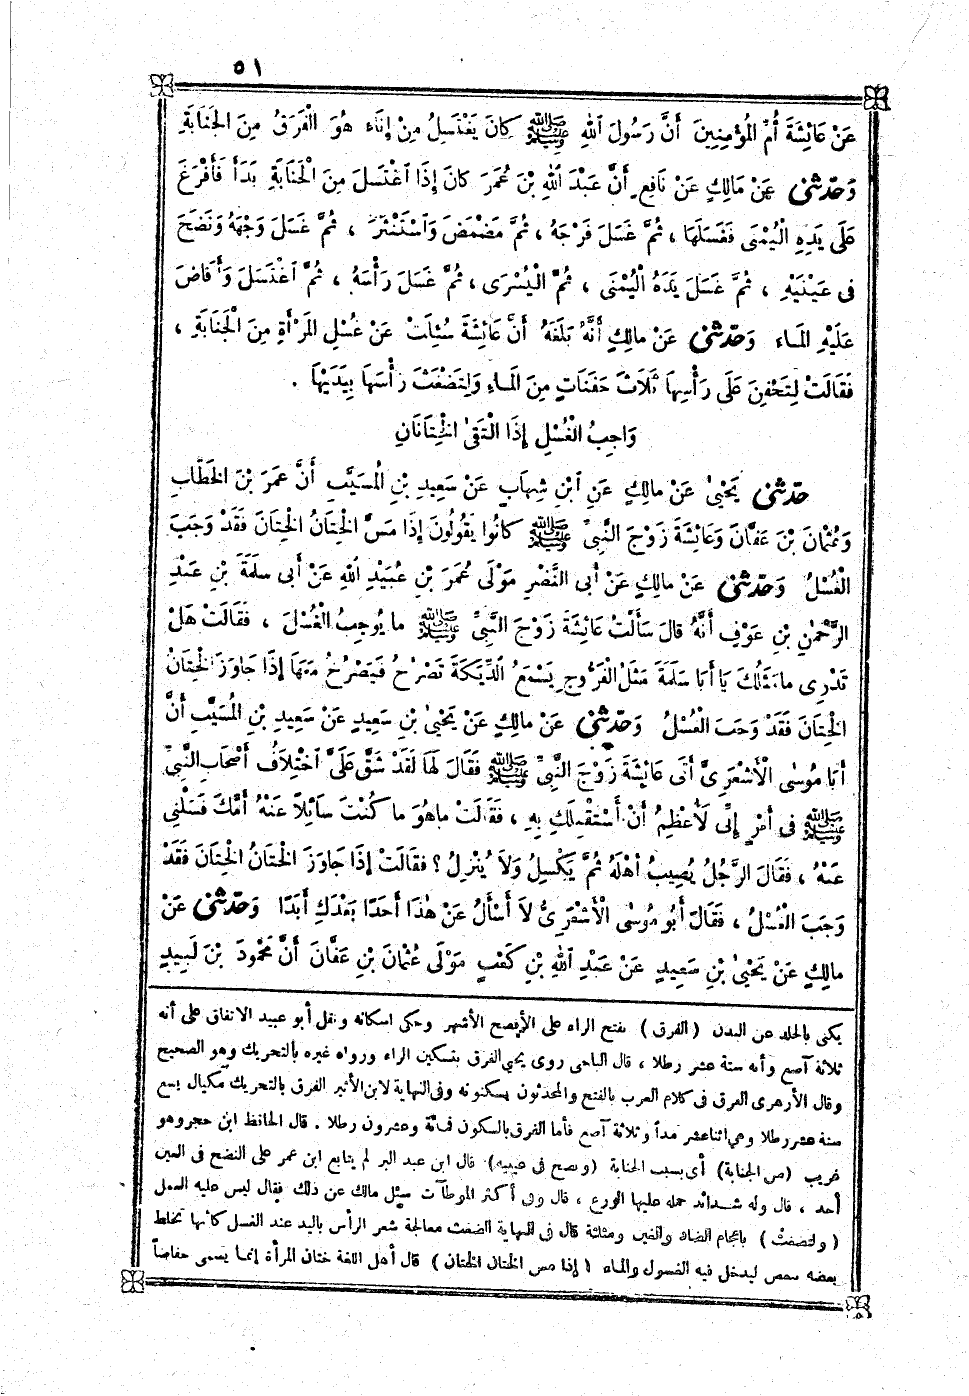 ٥١
عَنْ عَائِشَةَ أُمِّ الْمُؤْمِنِينَ أَنَّ رَسُولَ اللهِ ﷺ كَانَ يَغْتَسِلُ مِنْ إِنَاءٍ هُوَ الْفَرَقُ مِنَ الْجَنَابَةِ
وَحَدَّثَنِي عَنْ مَالِكٍ عَنْ نَافِعٍ أَنَّ عَبْدَ اللهِ بْنَ عُمَرَ كَانَ إِذَا اغْتَسَلَ مِنَ الْجَنَابَةِ بَدَأَ فَأَفْرَغَ
عَلَى يَدِهِ الْيُمْنَى فَغَسَلَهَا ، ثُمَّ غَسَلَ فَرْجَهُ ، ثُمَّ مَضْمَضَ وَاسْتَنْثَرَ ، ثُمَّ غَسَلَ وَجْهَهُ وَنَضَحَ
فِي عَيْنَيْهِ ، ثُمَّ غَسَلَ يَدَهُ الْيُمْنَى ، ثُمَّ الْيُسْرَى ، ثُمَّ غَسَلَ رَأْسَهُ ، ثُمَّ اغْتَسَلَ وَأَفَاضَ
عَلَيْهِ الْمَاءَ وَحَدَّثَنِي عَنْ مالِكٍ أَنَّهُ بَلَغَهُ أَنَّ عَائِشَةَ سُئِلَتْ عَنْ غُسْلِ الْمَرْأَةِ مِنَ الْجَنَابَةِ ،
فَقَالَتْ لِتَحْفِنْ عَلَى رَأْسِهَا ثَلَاثَ حَفَنَاتٍ مِنَ الْمَاءِ وَلِتَضْغَثْ رَأْسَهَا بِيَدَيْهَا .
وَاجِبُ الْغُسْلِ إِذَا الْتَقَى الْخِتَانَانِ
حَدَّثَنِي يَحْيَى عَنْ مَالِكٍ عَنِ ابْنِ شِهَابٍ عَنْ سَعِيدِ بْنِ الْمُسَيَّبِ أَنَّ عُمَرَ بْنَ الْخَطَّابِ
وَعُثْمَانَ بْنَ عَفَّانَ وَعَائِشَةَ زَوْجَ النَّبِيِّ ﷺ كَانُوا يَقُولُونَ إِذَا مَسَّ الْخِتَانُ الْخِتَانَ فَقَدْ وَجَبَ
الْغُسْلُ وَحَدَّثَنِي عَنْ مالِكٍ عَنْ أَبِي النَّضْرِ مَوْلَى عُمَرَ بْنِ عُبَيْدِ اللهِ عَنْ أَبِي سَلَمَةَ بْنِ عَبْدِ
الرَّحْمٰنِ بْنِ عَوْفٍ أَنَّهُ قالَ سَأَلْتُ عَائِشَةَ زَوْجَ النَّبِيِّ ﷺ ما يُوجِبُ الْغُسْلَ ، فَقَالَتْ هَلْ
تَدْرِي ما مَثَلُكَ يَا أَبَا سَلَمَةَ مَثَلُ الْفَرُّوجِ يَسْمَعُ الدِّيَكَةَ تَصْرُخُ فَيَصْرُخُ مَعَهَا إِذَا جَاوَزَ الْخِتَانُ
الْخِتَانَ فَقَدْ وَجَبَ الْغُسْلُ وَحَدَّثَنِي عَنْ مالِكٍ عَنْ يَحْيَى بْنِ سَعِيدٍ عَنْ سَعِيدِ بْنِ الْمُسَيَّبِ أَنَّ
أَبَا مُوسَى الْأَشْعَرِيَّ أَتَى عَائِشَةَ زَوْجَ النَّبِيِّ ﷺ فَقَالَ لَهَا لَقَدْ شَقَّ عَلَيَّ اخْتِلَافُ أَصْحَابِ النَّبِيِّ
ﷺ فِي أَمْرٍ إِنِّي لَأُعْظِمُ أَنْ أَسْتَقْبِلَكِ بِهِ ، فَقَالَتْ ماهُوَ ما كُنْتَ سَائِلاً عَنْهُ أُمَّكَ فَسَلْنِي
عَنْهُ ، فَقَالَ الرَّجُلُ يُصِيبُ أَهْلَهُ ثُمَّ يُكْسِلُ وَلَا يُنْزِلُ ؟ فَقَالَتْ إِذَا جَاوَزَ الْخِتَانُ الْخِتَانَ فَقَدْ
وَجَبَ الْغُسْلُ ، فَقَالَ أَبُو مُوسَى الْأَشْعَرِيُّ لاَ أَسْأَلُ عَنْ هٰذَا أَحَدًا بَعْدَكِ أَبَدًا وَحَدَّثَنِي عَنْ
مالِكٍ عَنْ يَحْيَى بْنِ سَعِيدٍ عَنْ عَبْدِ اللهِ بْنِ كَعْبٍ مَوْلَى عُثْمَانَ بْنِ عَفَّانَ أَنَّ مَحْمُودَ بْنَ لَبِيدٍ
يكنى بالجلد عن البدن (الفرق) بفتح الراء على الأفصح الأشهر وحكى اسكانه ونقل أبو عبيد الاتفاق على أنه
ثلاثة آصع وأنه ستة عشر رطلا ، قال الباجى روى يحيى الفرق بتسكين الراء ورواه غيره بالتحريك وهو الصحيح
وقال الأزهرى الفرق فى كلام العرب بالفتح والمحدثون يسكنونه وفى النهاية لابن الأثير الفرق بالتحريك مكيال يسع
ستة عشر رطلا وهى اثنا عشر مداً وثلاثة آصع فأما الفرق بالسكون فمائة وعشرون رطلا . قال الحافظ ابن حجر وهو
غريب (من الجنابة) أى بسبب الجنابة (ونضح فى عينيه) قال ابن عبد البر لم يتابع ابن عمر على النضح فى العين
أحد ، قال وله شدائد حمله عليها الورع ، قال وفى أكثر الموطآت سئل مالك عن ذلك فقال ليس عليه العمل
(ولتضغث) باعجام الضاد والغين ومثلثة قال فى النهاية الضغث معالجة شعر الرأس باليد عند الغسل كأنها تخلط
بعضه ببعض ليدخل فيه الغسول والماء (إذا مس الختان الختان) قال أهل اللغة ختان المرأة إنما يسمى خفاضاً